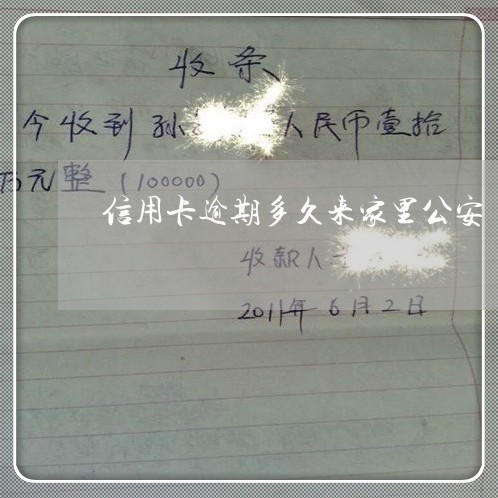 收条
今收到孙 人民币壹拾
万元整（100000）
信用卡逾期多久来家里公安
收款人
2011年6月2日